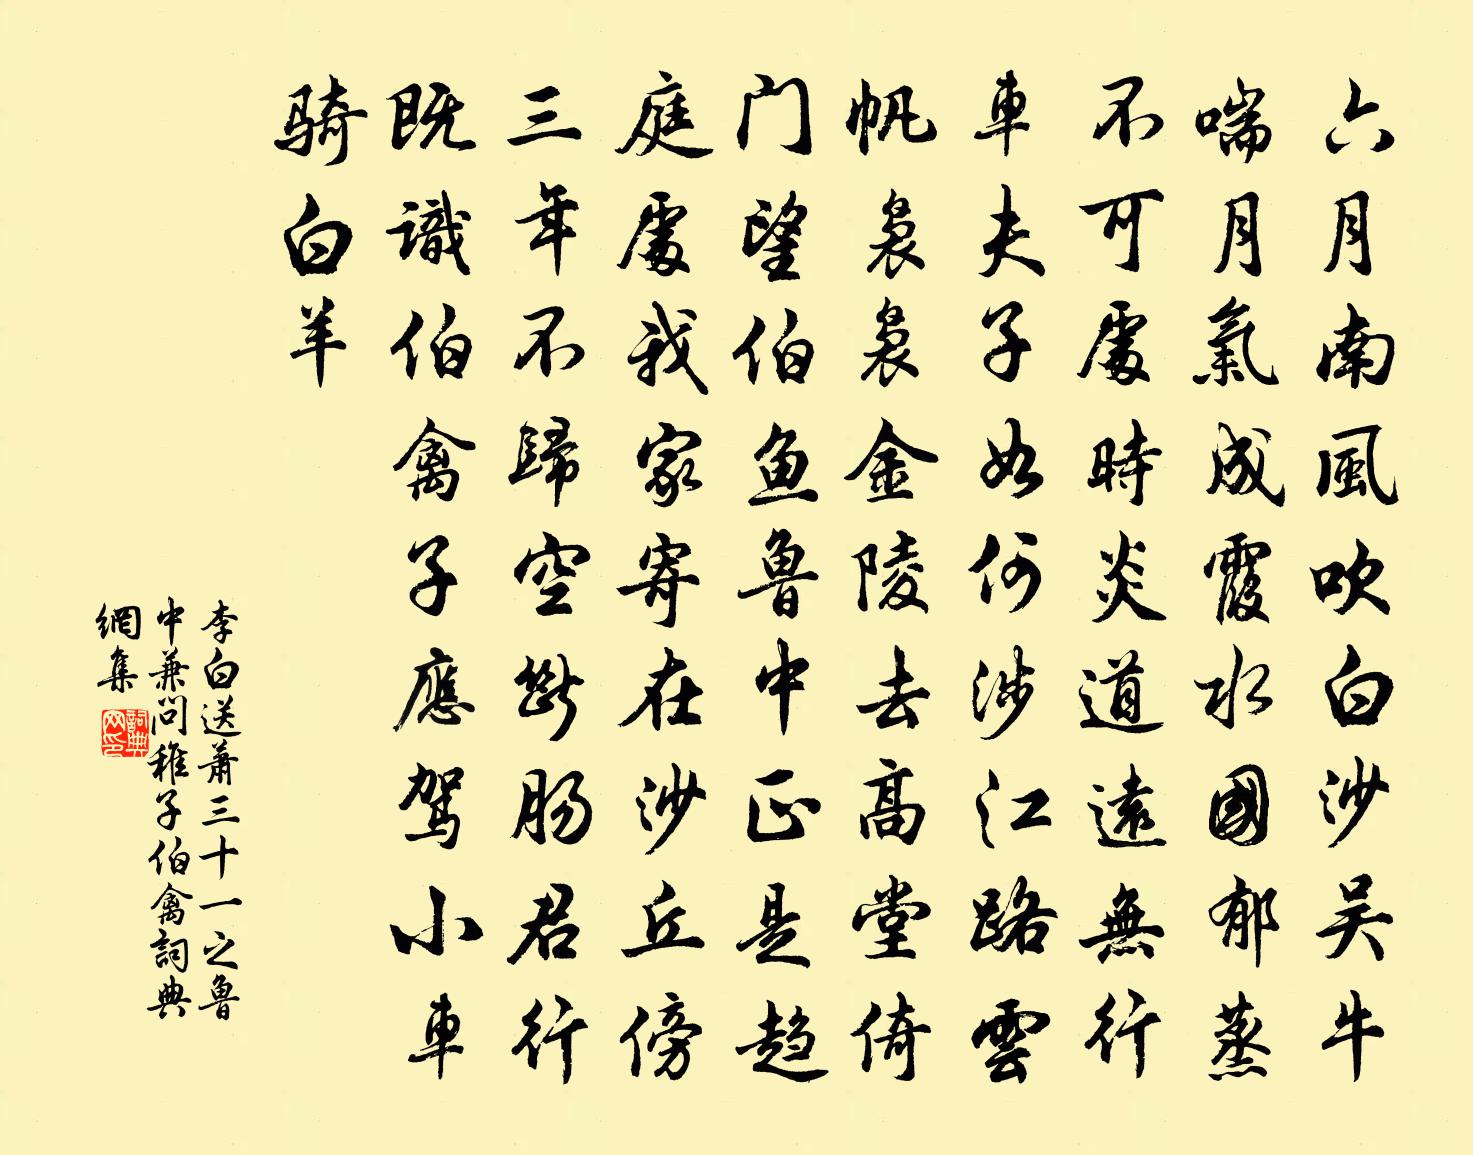 六月南風吹白沙吴牛
喘月氣成霞水國郁蒸
不可處時炎道遠無行
車夫子如何涉江路雲
帆袅袅金陵去高堂倚
门望伯鱼魯中正是趋
庭處我家寄在沙丘傍
三年不歸空断肠君行
既識伯禽子應驾小車
骑白羊
李白送萧三十一之魯
中兼问稚子伯禽詞典
網集
詞典
网印